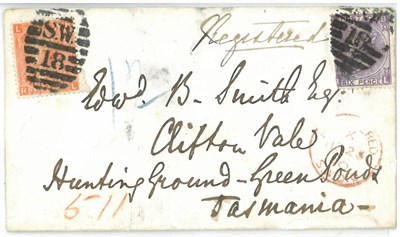 Registered
L
S.W.
18
R
18
SIX PENCE
L
Edwd B- Smith Esq:
Clifton Vale
Hunting Ground - Green Ponds
Tasmania -
511